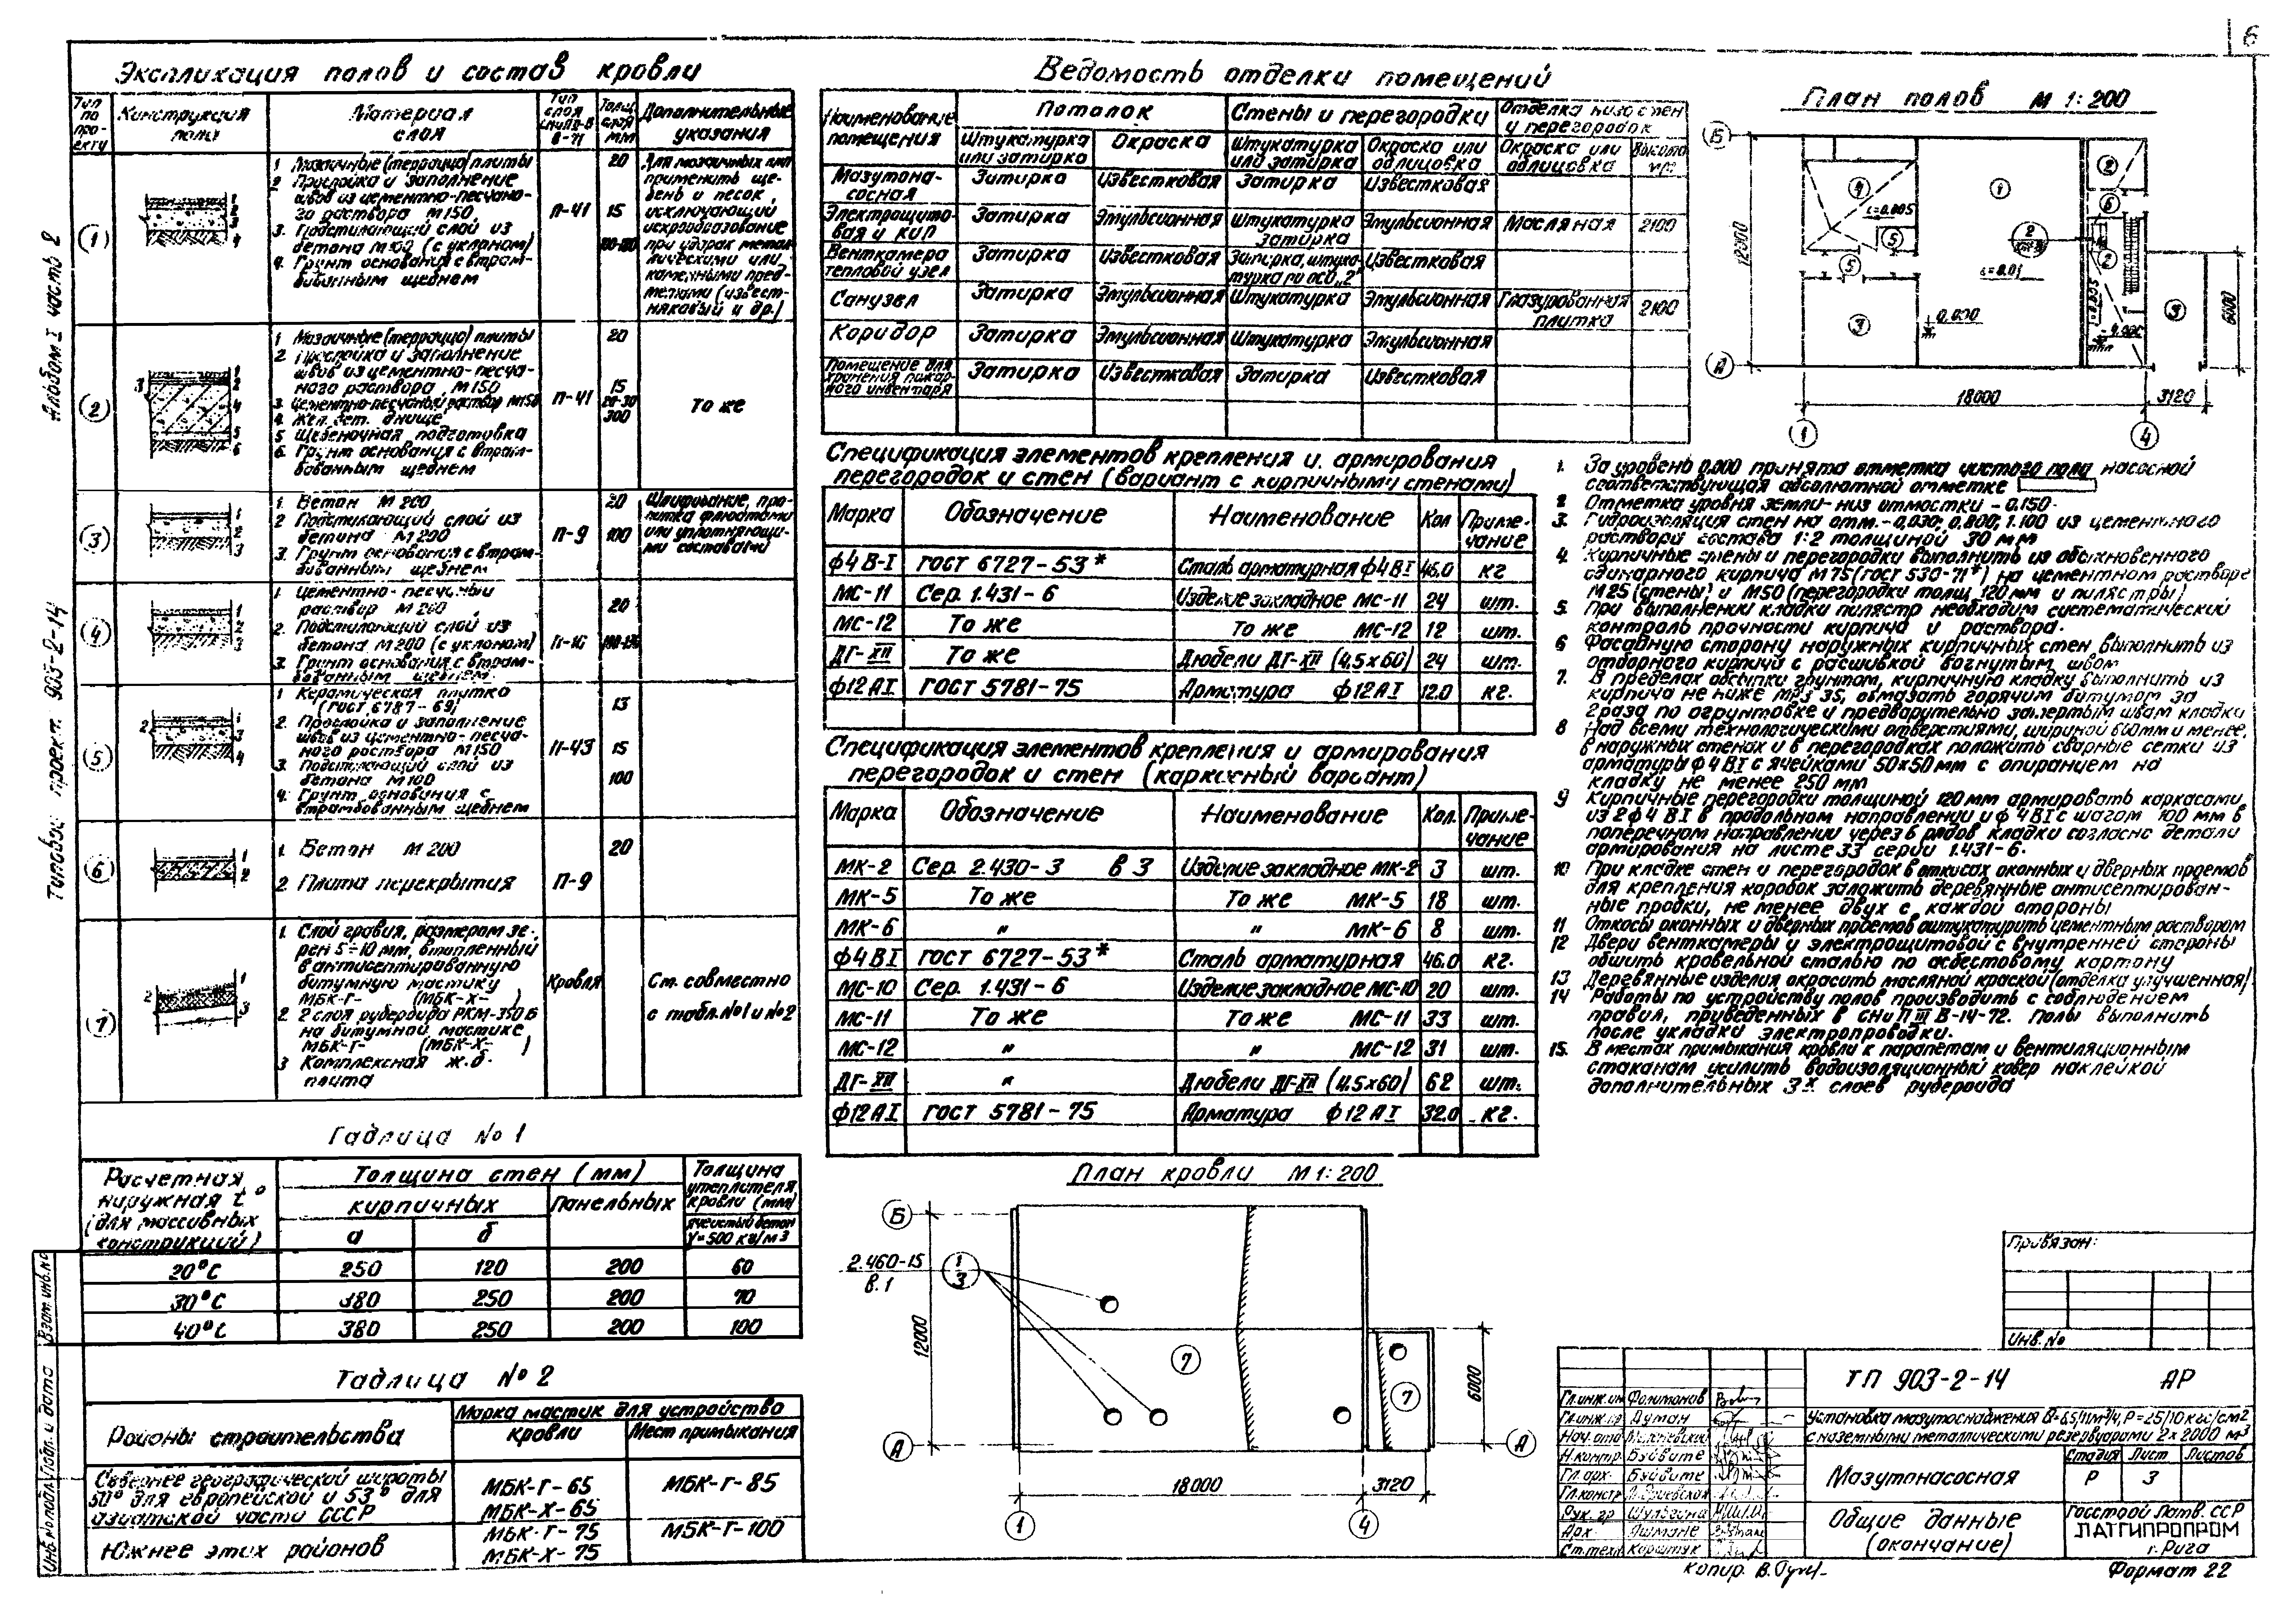 6
Экспликация полов и состав кровли
Тип по проекту
Конструкция пола
Материал слоя
Тип слоя СНиП II-В В-71
Толщ. слоя мм
Дополнительные указания
1
1 Мозаичные (террацио) плиты
2 Прослойка и заполнение
швов из цементно-песчано-
го раствора М150
3. Подстилающий слой из
бетона М100 (с уклоном)
4. Грунт основания с втрам-
бованным щебнем
П-41
20
15
Для мозаичных плит
применить ще-
бень и песок,
исключающий
искрообразование
при ударах метал-
лическими или
каменными пред-
метами (извест-
няковый и др.)
2
1 Мозаичные (террацио) плиты
2 Прослойка и заполнение
швов из цементно-песча-
ного раствора М150
3. Цементно-песчаный раствор М150
4. Жел. бет. днище
5 Щебеночная подготовка
6. Грунт основания с втрам-
бованным щебнем
П-41
20
15
20-30
300
То же
3
1. Бетон М200
2 Подстилающий слой из
бетона М200
3. Грунт основания с втрам-
бованным щебнем
П-9
20
100
Шлифование, про-
питка флюатами
или уплотняющи-
ми составами
4
1. Цементно-песчаный
раствор М200
2. Подстилающий слой из
бетона М200 (с уклоном)
3. Грунт основания с втрам-
бованным щебнем.
П-16
20
5
1 Керамическая плитка
(ГОСТ 6787-69)
2. Прослойка и заполнение
швов из цементно-песча-
ного раствора М150
3. Подстилающий слой из
бетона М100
4. Грунт основания с
втрамбованным щебнем
П-43
13
15
100
6
1. Бетон М200
2 Плита перекрытия
П-9
20
7
1. Слой гравия, размером зе-
рен 5÷10 мм, втопленный
в антисептированную
битумную мастику
МБК-Г- (МБК-Х- )
2. 2 слоя рубероида РКМ-350Б
на битумной мастике
МБК-Г- (МБК-Х- )
3 Комплексная ж.б.
плита
Кровля
См. совместно
с табл. №1 и №2
Таблица №1
Расчетная наружная t° (для массивных конструкций)
Толщина стен (мм)
кирпичных
Панельных
Толщина утеплителя кровли (мм)
ячеистый бетон γ=500 кг/м3
а б
20°С 250 120 200 60
30°С 380 250 200 70
40°С 380 250 200 100
Таблица №2
Районы строительства
Марка мастик для устройства
кровли
Мест примыкания
Севернее географической широты
50° для европейской и 53° для
азиатской части СССР
МБК-Г-65
МБК-Х-65
МБК-Г-85
Южнее этих районов
МБК-Г-75
МБК-Х-75
МБК-Г-100
Ведомость отделки помещений
Наименование помещения
Потолок
Стены и перегородки
Отделка низа стен и перегородок
Штукатурка или затирка
Окраска
Штукатурка или затирка
Окраска или облицовка
Окраска или облицовка
Высота мм
Мазутона-
сосная
Затирка Известковая Затирка Известковая
Электрощито-
вая и КИП
Затирка Эмульсионная Штукатурка затирка Эмульсионная Масляная 2100
Венткамера
тепловой узел
Затирка Известковая Затирка, штука-
турка по оси „2" Известковая
Санузел Затирка Эмульсионная Штукатурка Эмульсионная Глазурованная
плитка 2100
Коридор Затирка Эмульсионная Штукатурка Эмульсионная
Помещение для
хранения пожар-
ного инвентаря
Затирка Известковая Затирка Известковая
Спецификация элементов крепления и армирования
перегородок и стен (вариант с кирпичными стенами)
Марка Обозначение Наименование Кол Приме-
чание
ф4В-I ГОСТ 6727-53* Сталь арматурная ф4ВI 46.0 кг
МС-11 Сер. 1.431-6 Изделие закладное МС-11 24 шт.
МС-12 То же То же МС-12 12 шт.
ДГ-XII То же Дюбели ДГ-XII (4.5х60) 24 шт.
ф12АI ГОСТ 5781-75 Арматура ф12АI 12.0 кг.
Спецификация элементов крепления и армирования
перегородок и стен (каркасный вариант)
Марка Обозначение Наименование Кол. Приме-
чание
МК-2 Сер. 2.430-3 в 3 Изделие закладное МК-2 3 шт.
МК-5 То же То же МК-5 18 шт.
МК-6 " " МК-6 8 шт.
ф4ВI ГОСТ 6727-53* Сталь арматурная 46.0 кг.
МС-10 Сер. 1.431-6 Изделие закладное МС-10 20 шт.
МС-11 То же То же МС-11 33 шт.
МС-12 " " МС-12 31 шт.
ДГ-XII " Дюбели ДГ-XII (4.5х60) 62 шт.
ф12АI ГОСТ 5781-75 Арматура ф12АI 32.0 кг.
План кровли М 1:200
Б
А
2.460-15
в.1
1
3
12000
7
7
6000
А
18000
3120
1
4
План полов М 1:200
Б
А
12000
4
1
2
6
i=0.005
5
5
2
2
i=0.01
3
0.000
3
6000
18000
3120
1
4
1. За уровень 0.000 принята отметка чистого пола насосной
соответствующая абсолютной отметке
2 Отметка уровня земли-низ отмостки -0.150.
3. Гидроизоляция стен на отм.-0,030; 0.800; 1.100 из цементного
раствора состава 1:2 толщиной 30 мм
4. Кирпичные стены и перегородки выполнить из обыкновенного
одинарного кирпича М75 (ГОСТ 530-71*) на цементном растворе
М25 (стены) и М50 (перегородки толщ. 120 мм и пилястры)
5. При выполнении кладки пилястр необходим систематический
контроль прочности кирпича и раствора.
6 Фасадную сторону наружных кирпичных стен выполнить из
отборного кирпича с расшивкой вогнутым швом
7. В пределах обсыпки грунтом, кирпичную кладку выполнить из
кирпича не ниже Мрз 35, обмазать горячим битумом за
2 раза по огрунтовке и предварительно затертым швам кладки
8 Над всеми технологическими отверстиями, шириной и менее,
в наружных стенах и в перегородках положить сварные сетки из
арматуры ф4ВI с ячейками 50х50мм с опиранием на
кладку не менее 250 мм
9 Кирпичные перегородки толщиной 120мм армировать каркасами
из 2ф4ВI в продольном направлении и ф4ВI с шагом 100 мм в
поперечном направлении через 6 рядов кладки согласно детали
армирования на листе 33 серии 1.431-6.
10 При кладке стен и перегородок в откосах оконных и дверных проемов
для крепления коробок заложить деревянные антисептирован-
ные пробки, не менее двух с каждой стороны
11 Откосы оконных и дверных проемов оштукатурить цементным раствором
12 Двери венткамеры и электрощитовой с внутренней стороны
обшить кровельной сталью по асбестовому картону
13 Деревянные изделия окрасить масляной краской (отделка улучшенная)
14 Работы по устройству полов производить с соблюдением
правил, приведенных в СНиП III В-14-72. Полы выполнить
после укладки электропроводки.
15. В местах примыкания кровли к парапетам и вентиляционным
стаканам усилить водоизоляционный ковер наклейкой
дополнительных 3х слоев рубероида
Привязан:
Инв. №
ТП 903-2-14 АР
Установка мазутоснабжения В=6.5/11м3/ч, Р=25/10 кгс/см2
с наземными металлическими резервуарами 2х2000 м3
Мазутонасосная
Стадия Лист Листов
Р 3
Общие данные
(окончание)
Госстрой Латв. ССР
ЛАТГИПРОПРОМ
г. Рига
Гл.инж.ин Филимонов
Гл.инж.пр Думан
Нач.отд
Н.контр Буйвите
Гл.арх. Буйвите
Гл.констр
Рук. гр Шульгина
Арх. Яшмане
Ст.техн Карштук
Копир.
Формат 22
Альбом I часть 2
Типовой проект 903-2-14
Взам. инв. №
Подп. и дата
Инв. № подл.